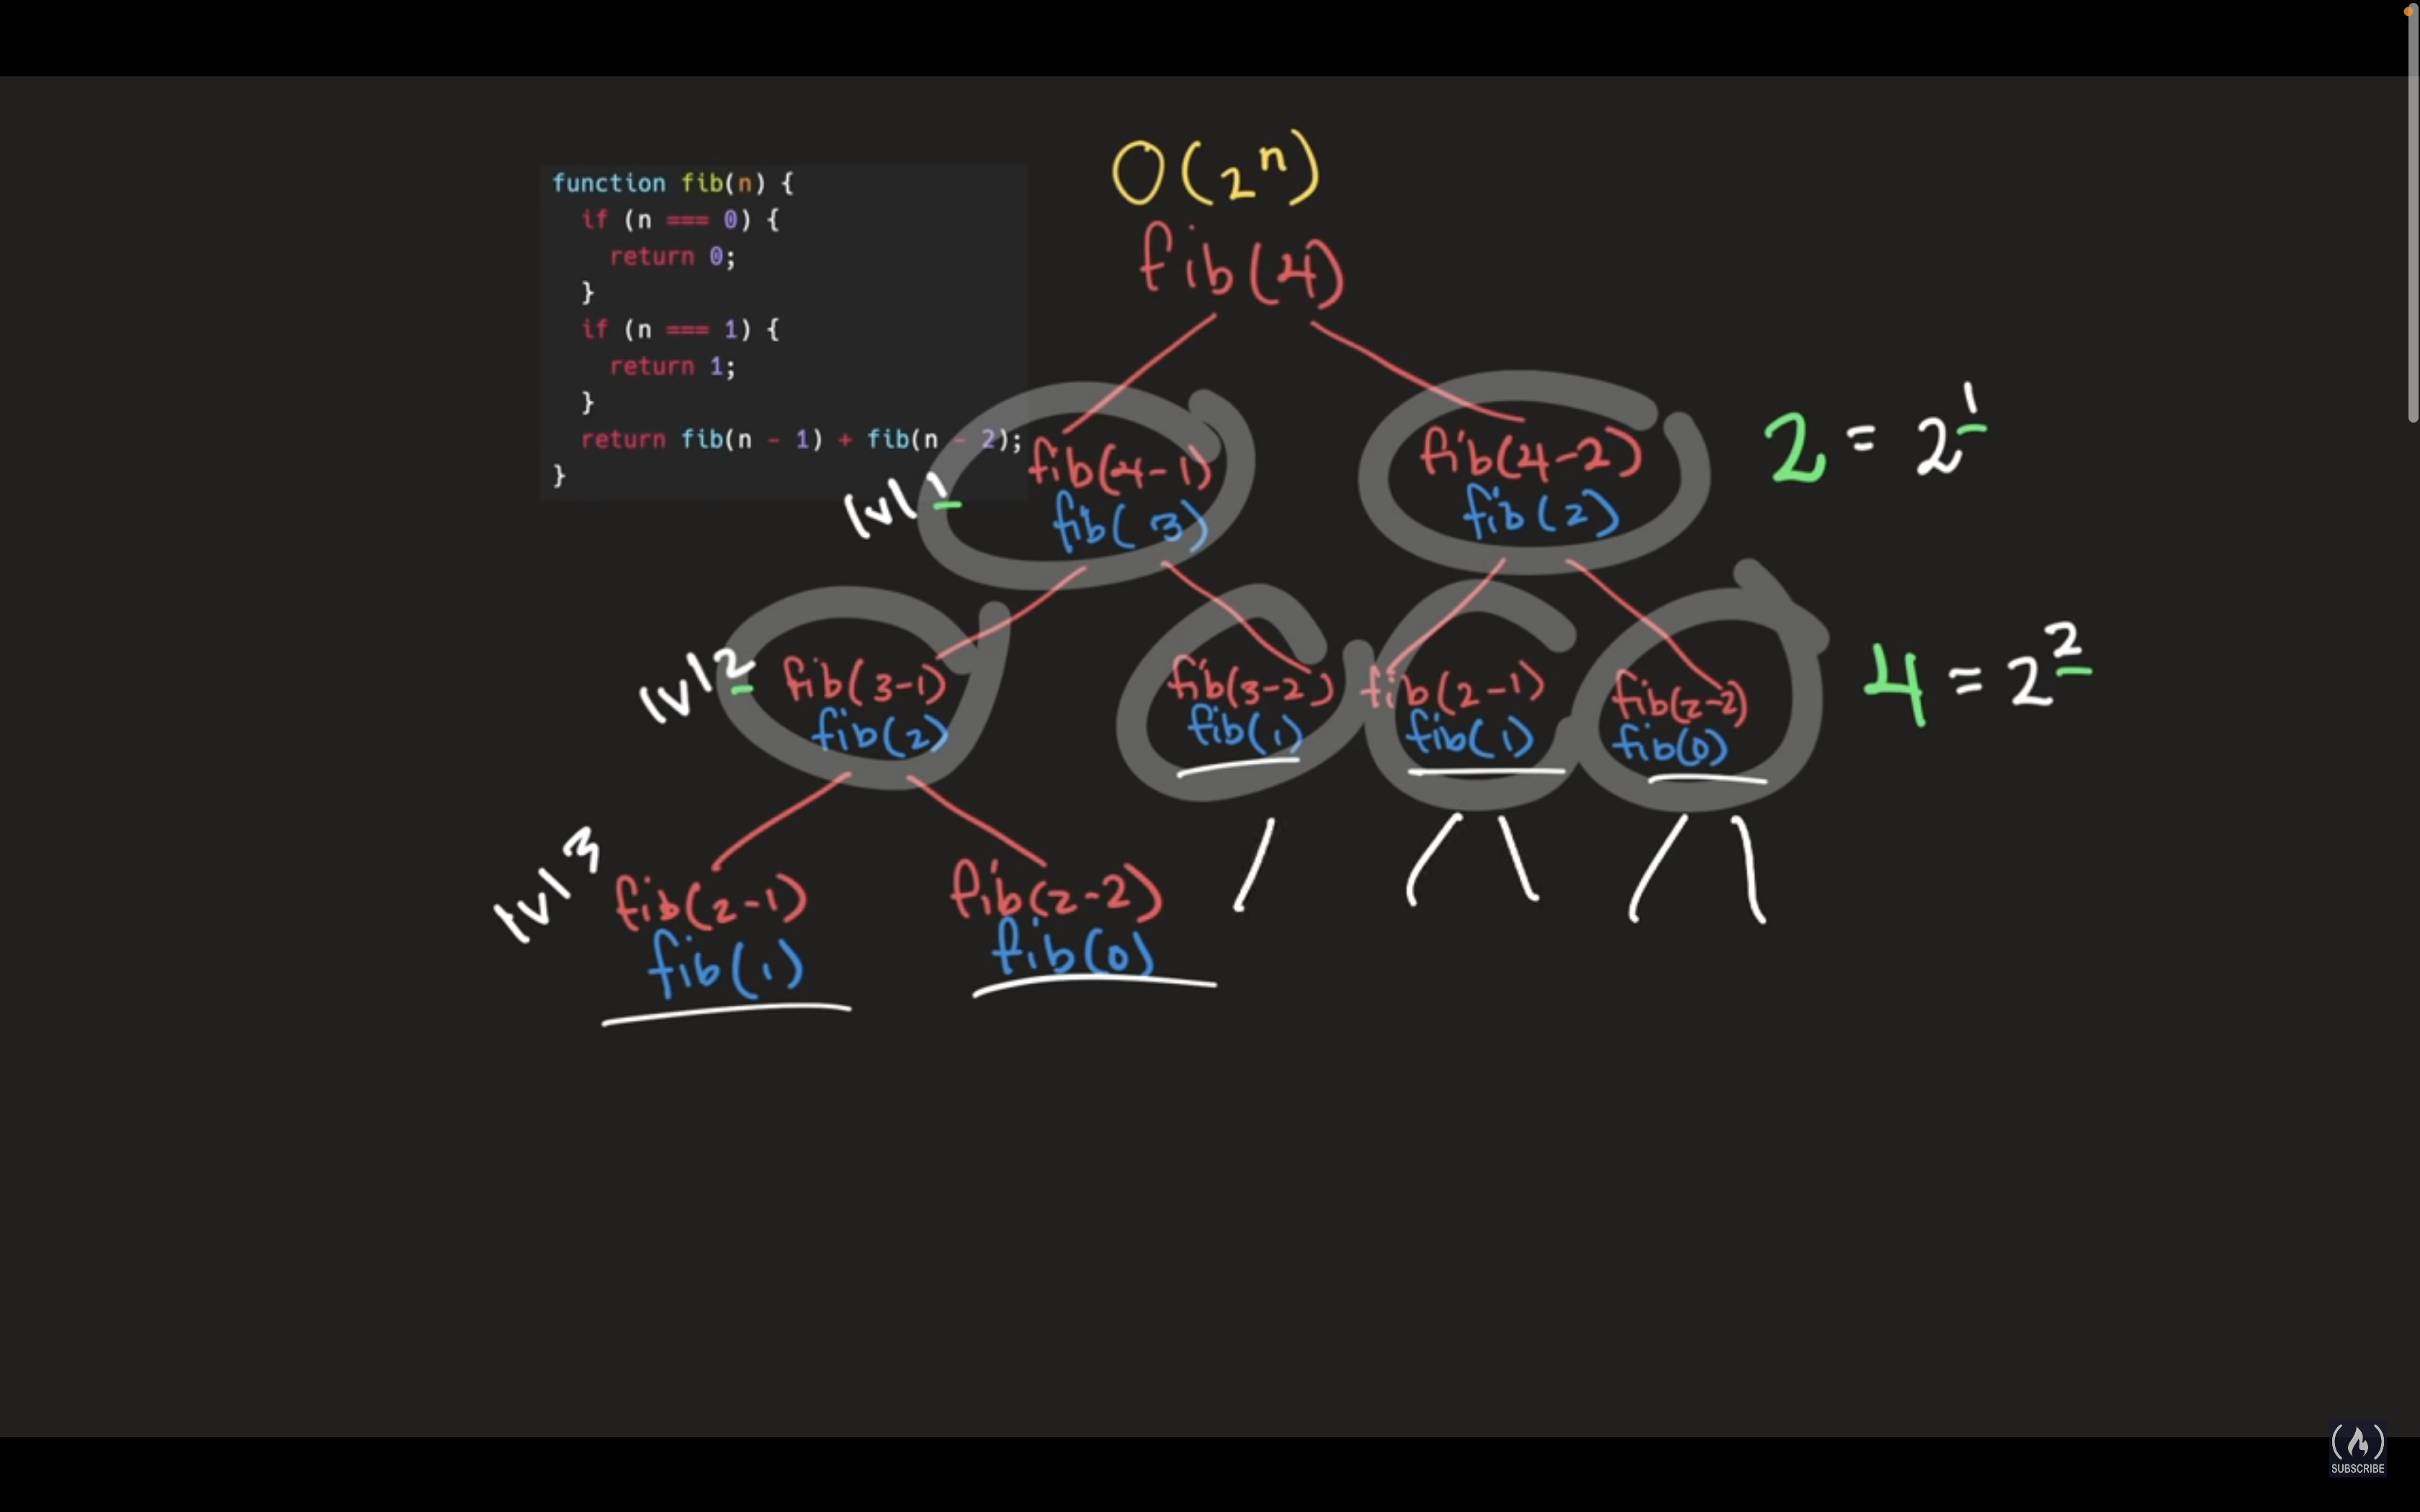 function fib(n) {
if (n === 0) {
return 0;
}
if (n === 1) {
return 1;
}
return fib(n - 1) + fib(n - 2);
}
O(2^n)
fib(4)
lvl 1
fib(4-1)
fib(3)
fib(4-2)
fib(2)
2 = 2^1
lvl 2
fib(3-1)
fib(2)
fib(3-2)
fib(1)
fib(2-1)
fib(1)
fib(2-2)
fib(0)
4 = 2^2
lvl 3
fib(2-1)
fib(1)
fib(2-2)
fib(0)
SUBSCRIBE